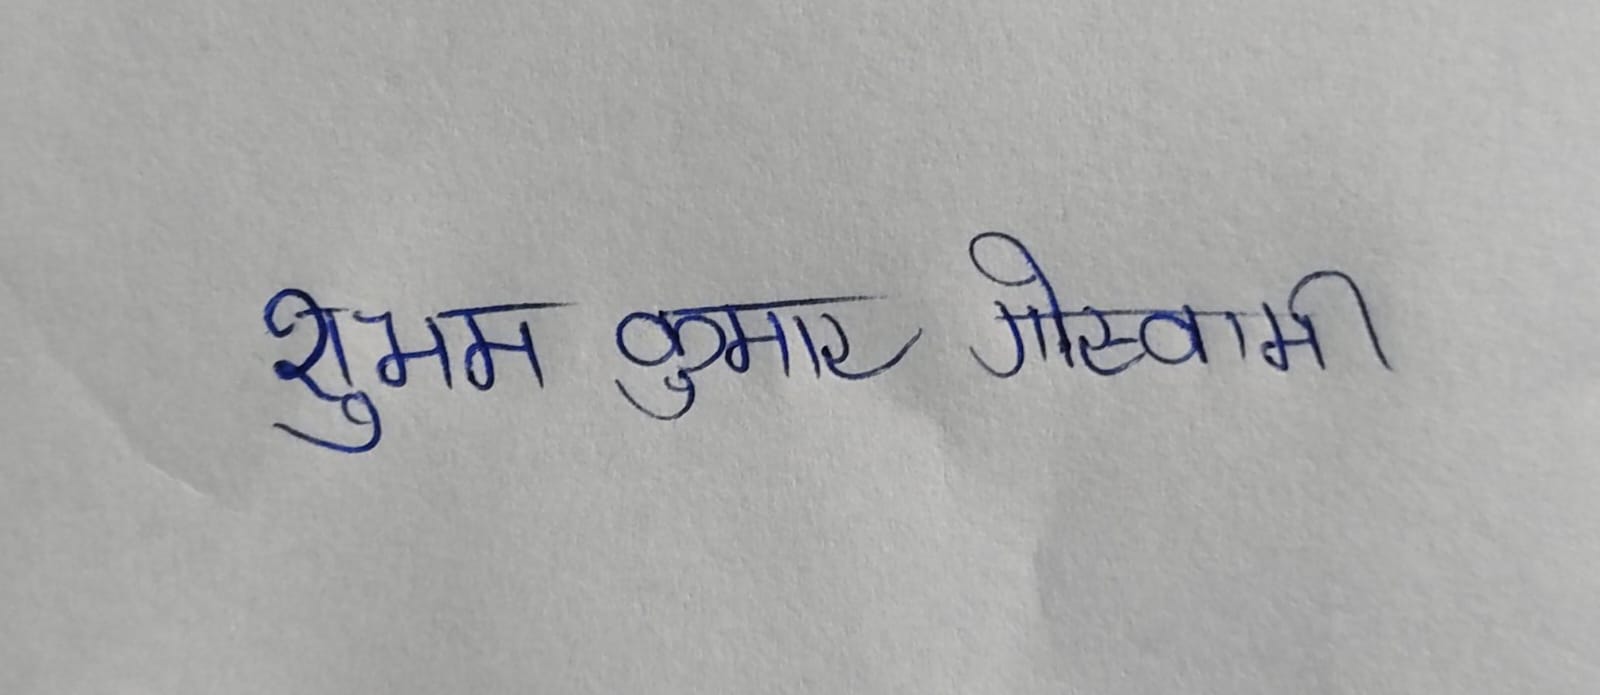 शुभम कुमार गोस्वामी